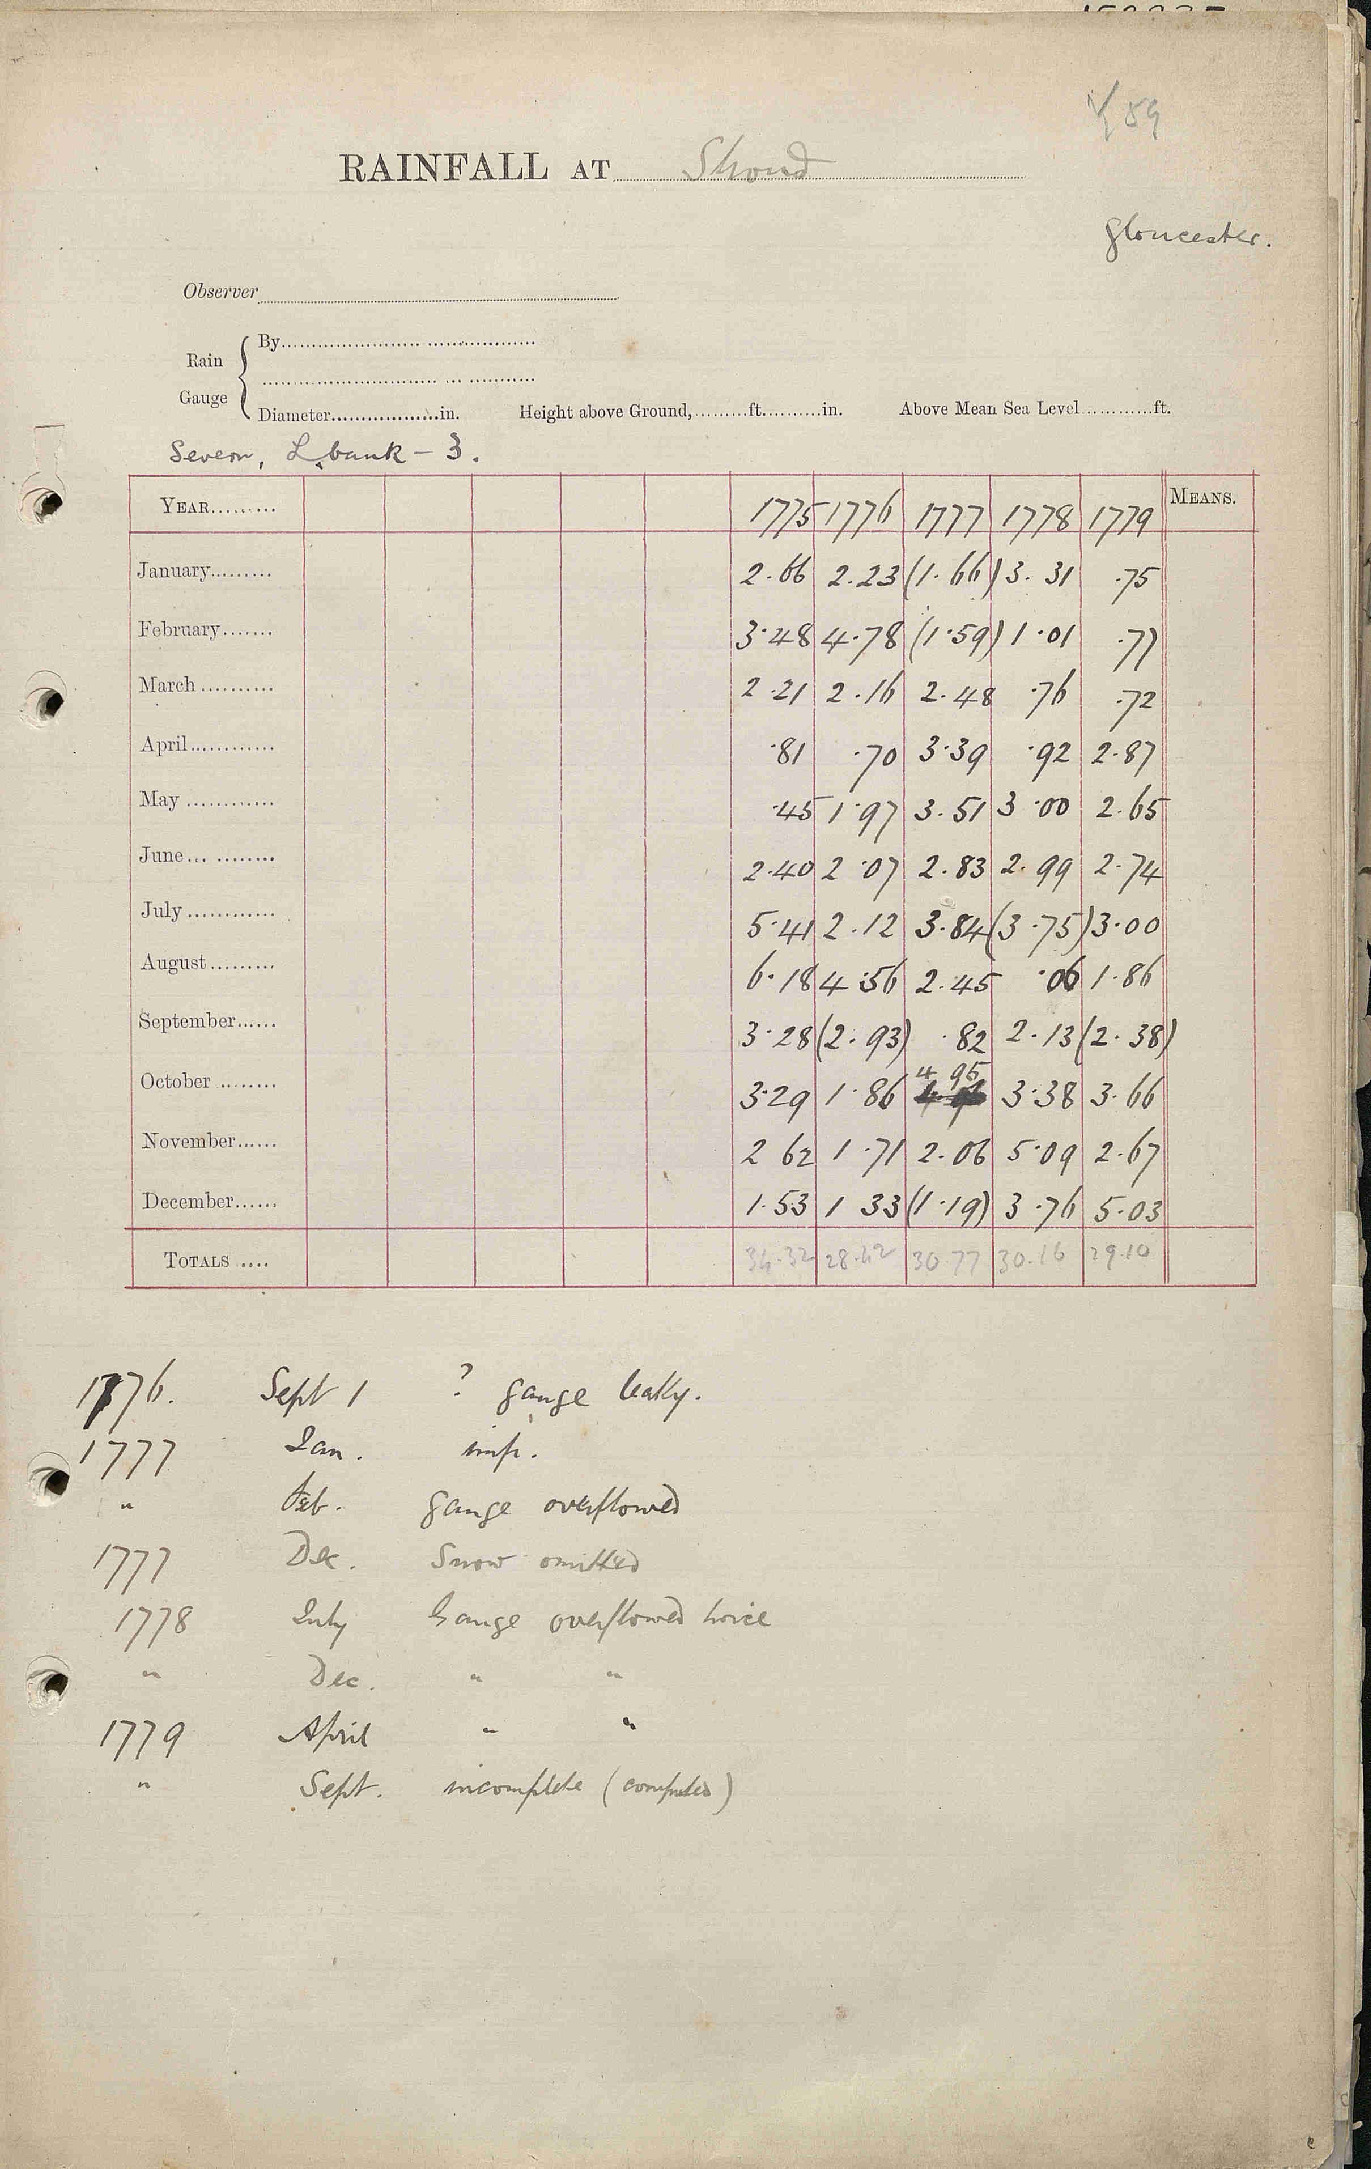 89
RAINFALL AT Stroud
Gloucester.
Observer
Rain Gauge { By
Diameter in. Height above Ground, ft. in. Above Mean Sea Level ft.
Severn, L. bank - 3.
YEAR 1775 1776 1777 1778 1779 MEANS.
January 2.66 2.23 (1.66) 3.31 .75
February 3.48 4.78 (1.59) 1.01 .77
March 2.21 2.16 2.48 .76 .72
April .81 .70 3.39 .92 2.87
May .45 1.97 3.51 3.00 2.65
June 2.40 2.07 2.83 2.99 2.74
July 5.41 2.12 3.84 (3.75) 3.00
August 6.18 4.56 2.45 .06 1.86
September 3.28 (2.93) .82 2.13 (2.38)
October 3.29 1.86 4 95 3.38 3.66
November 2 62 1.71 2.06 5.09 2.67
December 1.53 1 33 (1.19) 3.76 5.03
TOTALS 34.32 28.42 30 77 30.16 29.10
1776. Sept 1 ? gauge leaky.
1777 Jan. imp.
" Feb. gauge overflowed
1777 Dec. Snow omitted
1778 July Gauge overflowed twice
" Dec. " "
1779 April " "
" Sept. incomplete (computed)